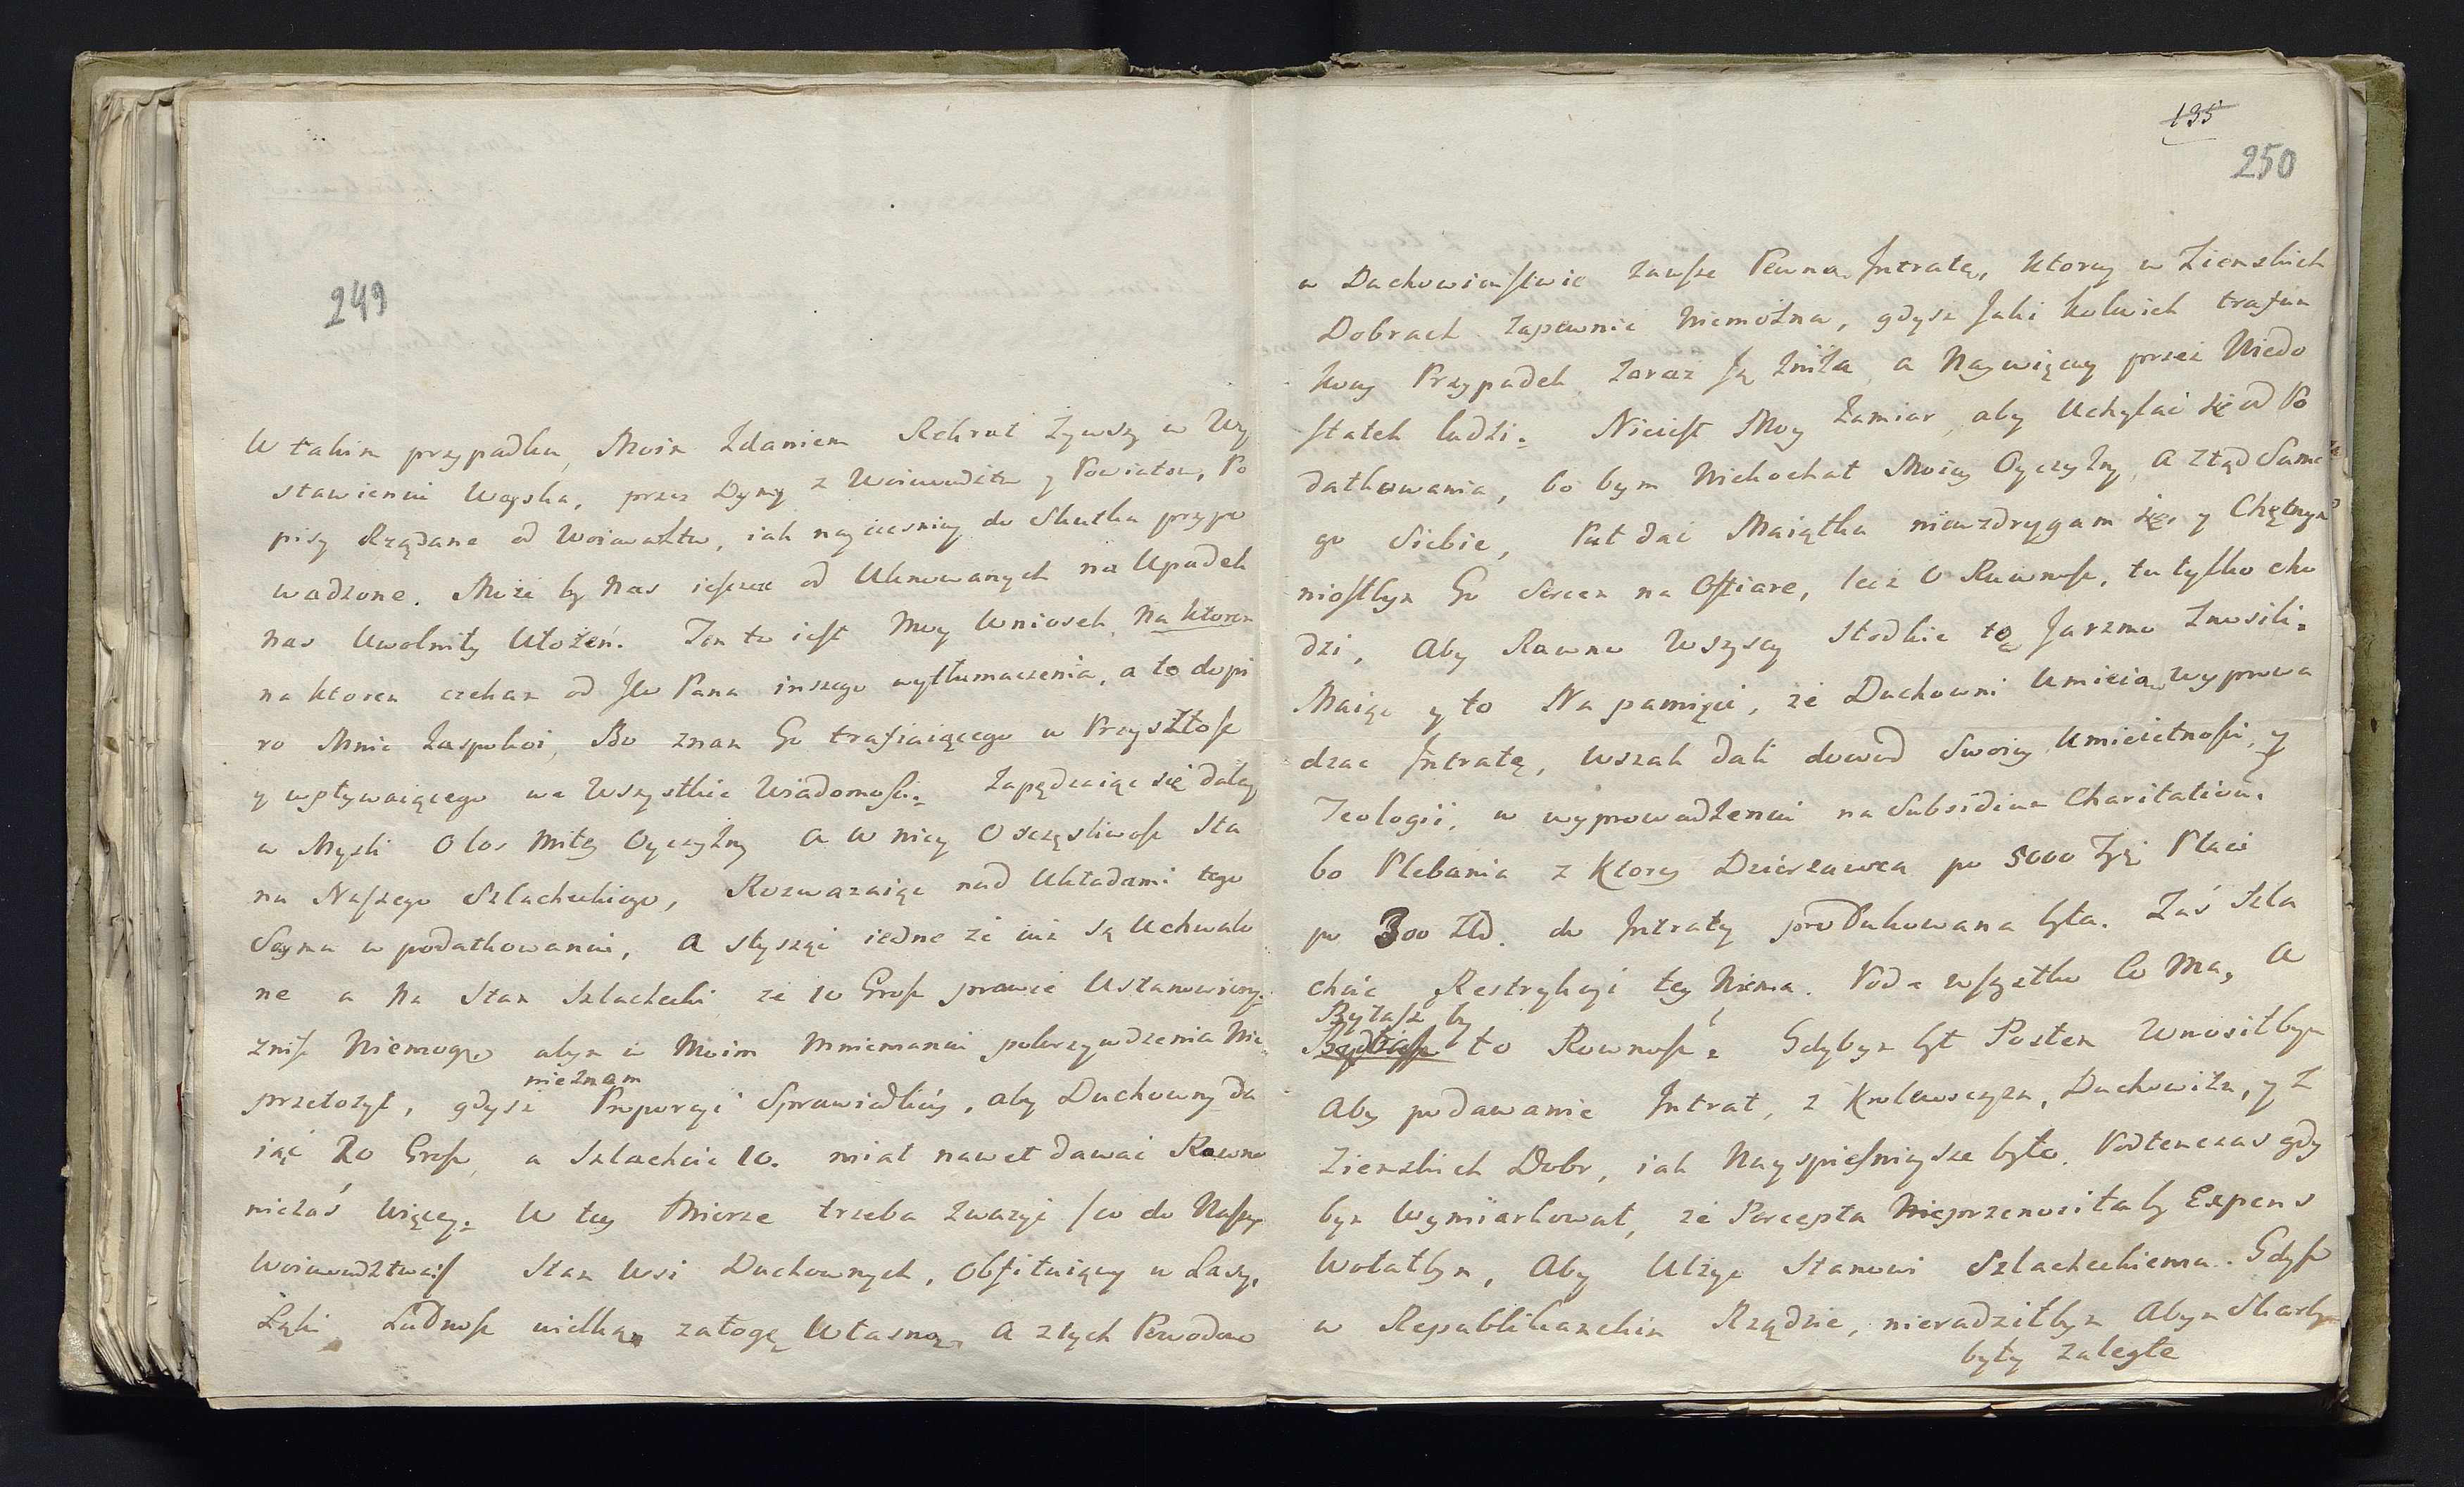 249
W takim przypadku, Moim Zdaniem Rekrut Żywszy w Wy
stawieniu Woyska, przez Dymy z Woiewodztw y Powiatow, Po
pisy Rządane od Woiewodztw, iak nayciesniey do Skutku przypro
wadzone. Może by Nas ieszcze od Uknowanych na Upadek
nas Uwolniły Ułożeń. Ten to iest Moy Wniosek, Na ktoren
na ktoren czekam od JW Pana inszego wytłumaczenia, a to dopi
ro Mnie Zaspokoi, Bo znam Go trafiaiącego w Przyszłość
y wpływaiącego we Wszystkie Wiadomości. Zapędzaiąc się daley
w Myśli O los Miłey Oyczyzny A W niey O sczęsliwość Sta
nu Naszego Szlacheckiego, Rozwazaiąc nad Układami tego
Seymu w podatkowaniu, A słysząc iedne że iuż są Uchwalo
ne a Na Stan Szlachecki ze 10 Grosz prawie Ustanowiony.
Znieść Niemogę abym w Moim Mniemaniu pokrzywdzenia Nie
przełozył, gdysz nieznam Proporcyi Sprawiedliwey, aby Duchowny da
iąc 20 Grosz a Szlachcic 10. miał nawet dawać Rowno
niezaś Więcey. W tey Mierze trzeba Zważyć /co do Naszy:
Woiewodztwa/ Stan Wsi Duchownych, Obfituiący w Lasy,
Łąki Ludność wielką załogę Własną, A z tych Powodow
195
250
w Duchowieństwie zawsze Pewną Intratę, ktorey w Ziemskich
Dobrach Zapewnić Niemożna, gdysz Jaki kolwiek trafun
kowy Przypadek Zaraz Ją Zniża, a Naywięcey przez Niedo
statek ludzi. Nieiest Moy Zamiar, aby Uchylać się od Po
datkowania, bo bym Niekochał Moiey Oyczyzny, A ztąd Same
go Siebie, Puł dać Maiątku niewzdrygam się, y Chętnym
niosłbym Go Sercem na Ofiarę, lecz O Rowność, tu tylko cho
dzi, Aby Rowno Wszyscy Słodkie to Jarzmo Znosili.
Maiąc y to Na pamięci, że Duchowni Umieią Wyprowa
dzac Intratę, wszak dali dowod Swoiey Umieietności, y
Teologii, w wyprowadzeniu na Subsidium Charitativum.
bo Plebania z Ktorey Dzierżawca po 5000 Zł: Płaci
po 300 Złł. do Intraty produkowana była. Zaś Szla
chcic Restrykcyi tey Niema. Poda wszystko Co Ma, A
Byłaśz by
to Rowność? Gdybym był Posłem Wnosiłbym
Aby podawanie Intrat, z Krolewsczyzn, Duchowizn, y Z
Ziemskich Dobr, iak Nayspieszniysze było. Podtenczas gdy
bym Wymiarkował, że Percepta Nieprzenosiłaby Expens
Wołałbym, Aby Ulżyć Stanowi Szlacheckiemu. Gdyż
w Republikanckim Rządzie, nieradziłbym Abym Skarby
były zaległe